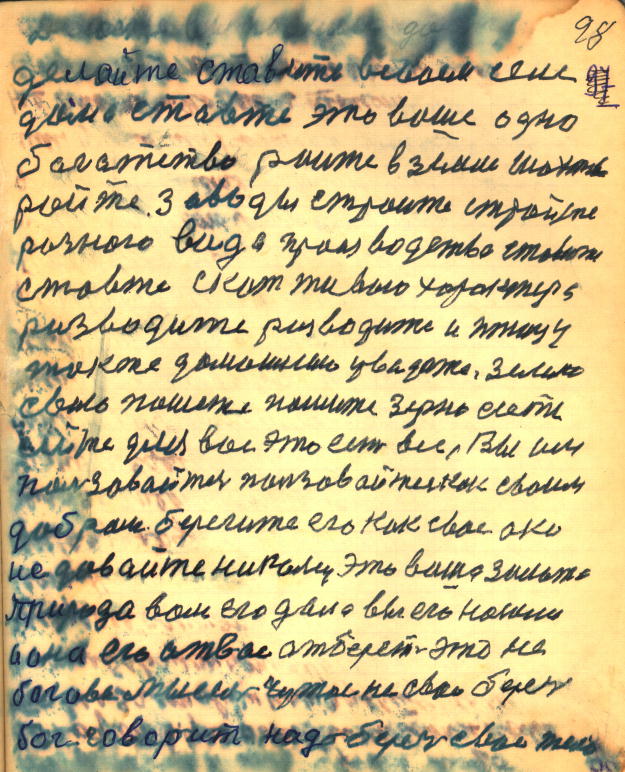 98
делайте ставите всвоем селе
дома ставте это ваше одно
богатество роите в земле шахты
ройте. Заводы строите стройте
разного вида производство ставите
ставте скот живого характера
разводите разводите и птицу
также домашнею увадите. Землю
свою пашете пашите зерно сеети
сейте для вас это есть все, Вы им
ползовайтеся ползовайтеся как своим
добром берегите его как свое око
не давайте никому, это ваша золото
Природа вам его дала вы его нашли
иона его отвас отберет это не
богова мысль чужое не свое беру
бог говорит надо беру свое тело